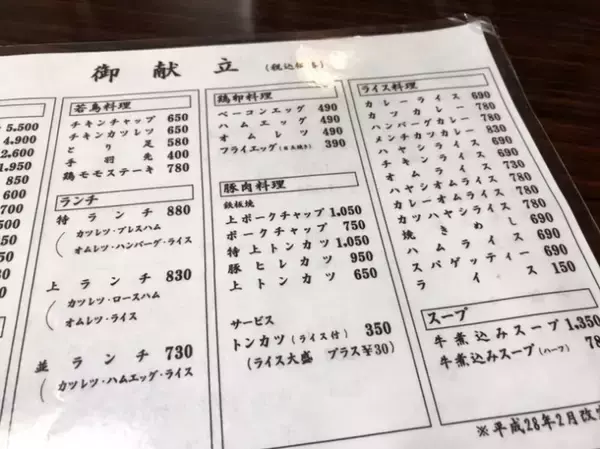 御献立 (税込価格)
5.500
4.900
2.600
1.950
850
600
若鳥料理
チキンチャップ 650
チキンカツレツ 650
とり足 580
手羽先 400
鶏モモステーキ 780
ランチ
特ランチ 880
(カツレツ・プレスハム
オムレツ・ハンバーグ・ライス
上ランチ 830
(カツレツ・ロースハム
オムレツ・ライス
並ランチ 730
(カツレツ・ハムエッグ・ライス
鶏卵料理
ベーコンエッグ 490
ハムエッグ 490
オムレツ 490
フライエッグ(目玉焼き) 390
豚肉料理
鉄板焼
上ポークチャップ 1,050
ポークチャップ 750
特上トンカツ 1,050
豚ヒレカツ 950
上トンカツ 650
サービス
トンカツ(ライス付) 350
(ライス大盛 プラス¥30)
ライス料理
カレーライス 690
カツカレー 780
ハンバーグカレー 780
メンチカツカレー 830
ハヤシライス 690
チキンライス 690
オムライス 730
ハヤシオムライス 780
カレーオムライス 780
カツハヤシライス 780
焼きめし 690
ハムライス 690
スパゲッティー 690
ライス 150
スープ
牛煮込みスープ 1,350
牛煮込みスープ(ハーフ) 78
※平成28年2月改